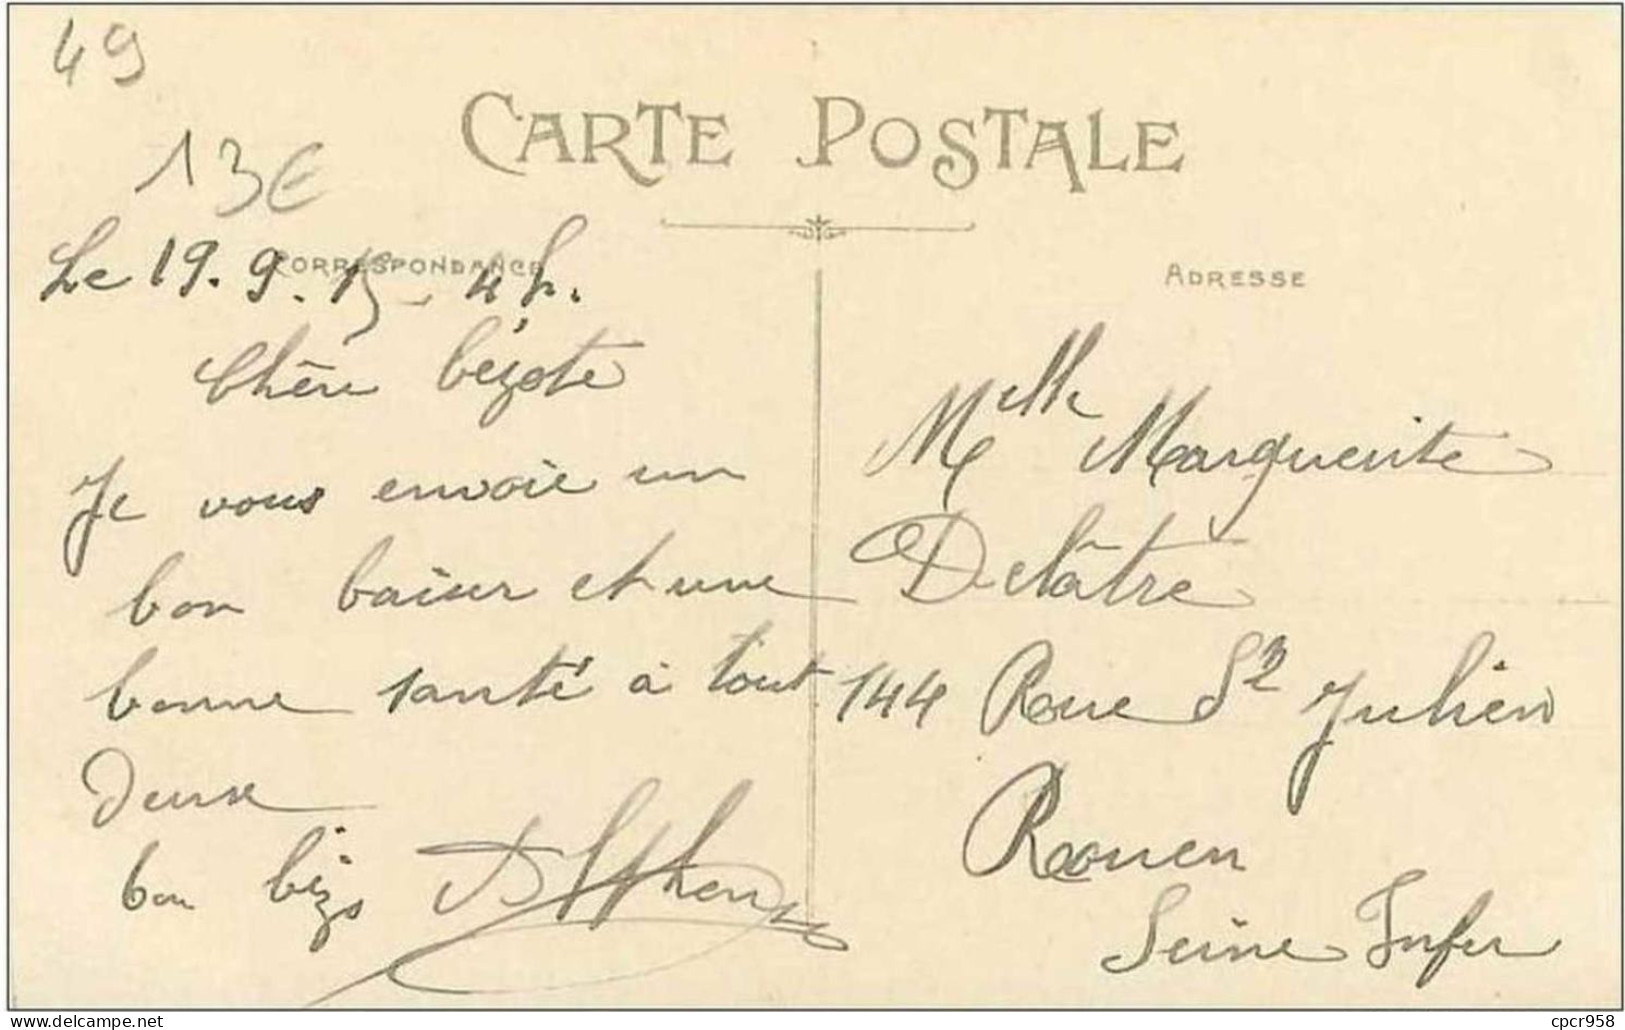 49
13€
CARTE POSTALE
CORRESPONDANCE
Le 19.9.15 - 4 h.
Chère bézote
Je vous envoie un
bon baiser et une
bonne santé à tout
deux
bon bizo Alphon
ADRESSE
Melle Marguerite
Delâtre
144 Rue St Julien
Rouen
Seine Infer
cpcr958